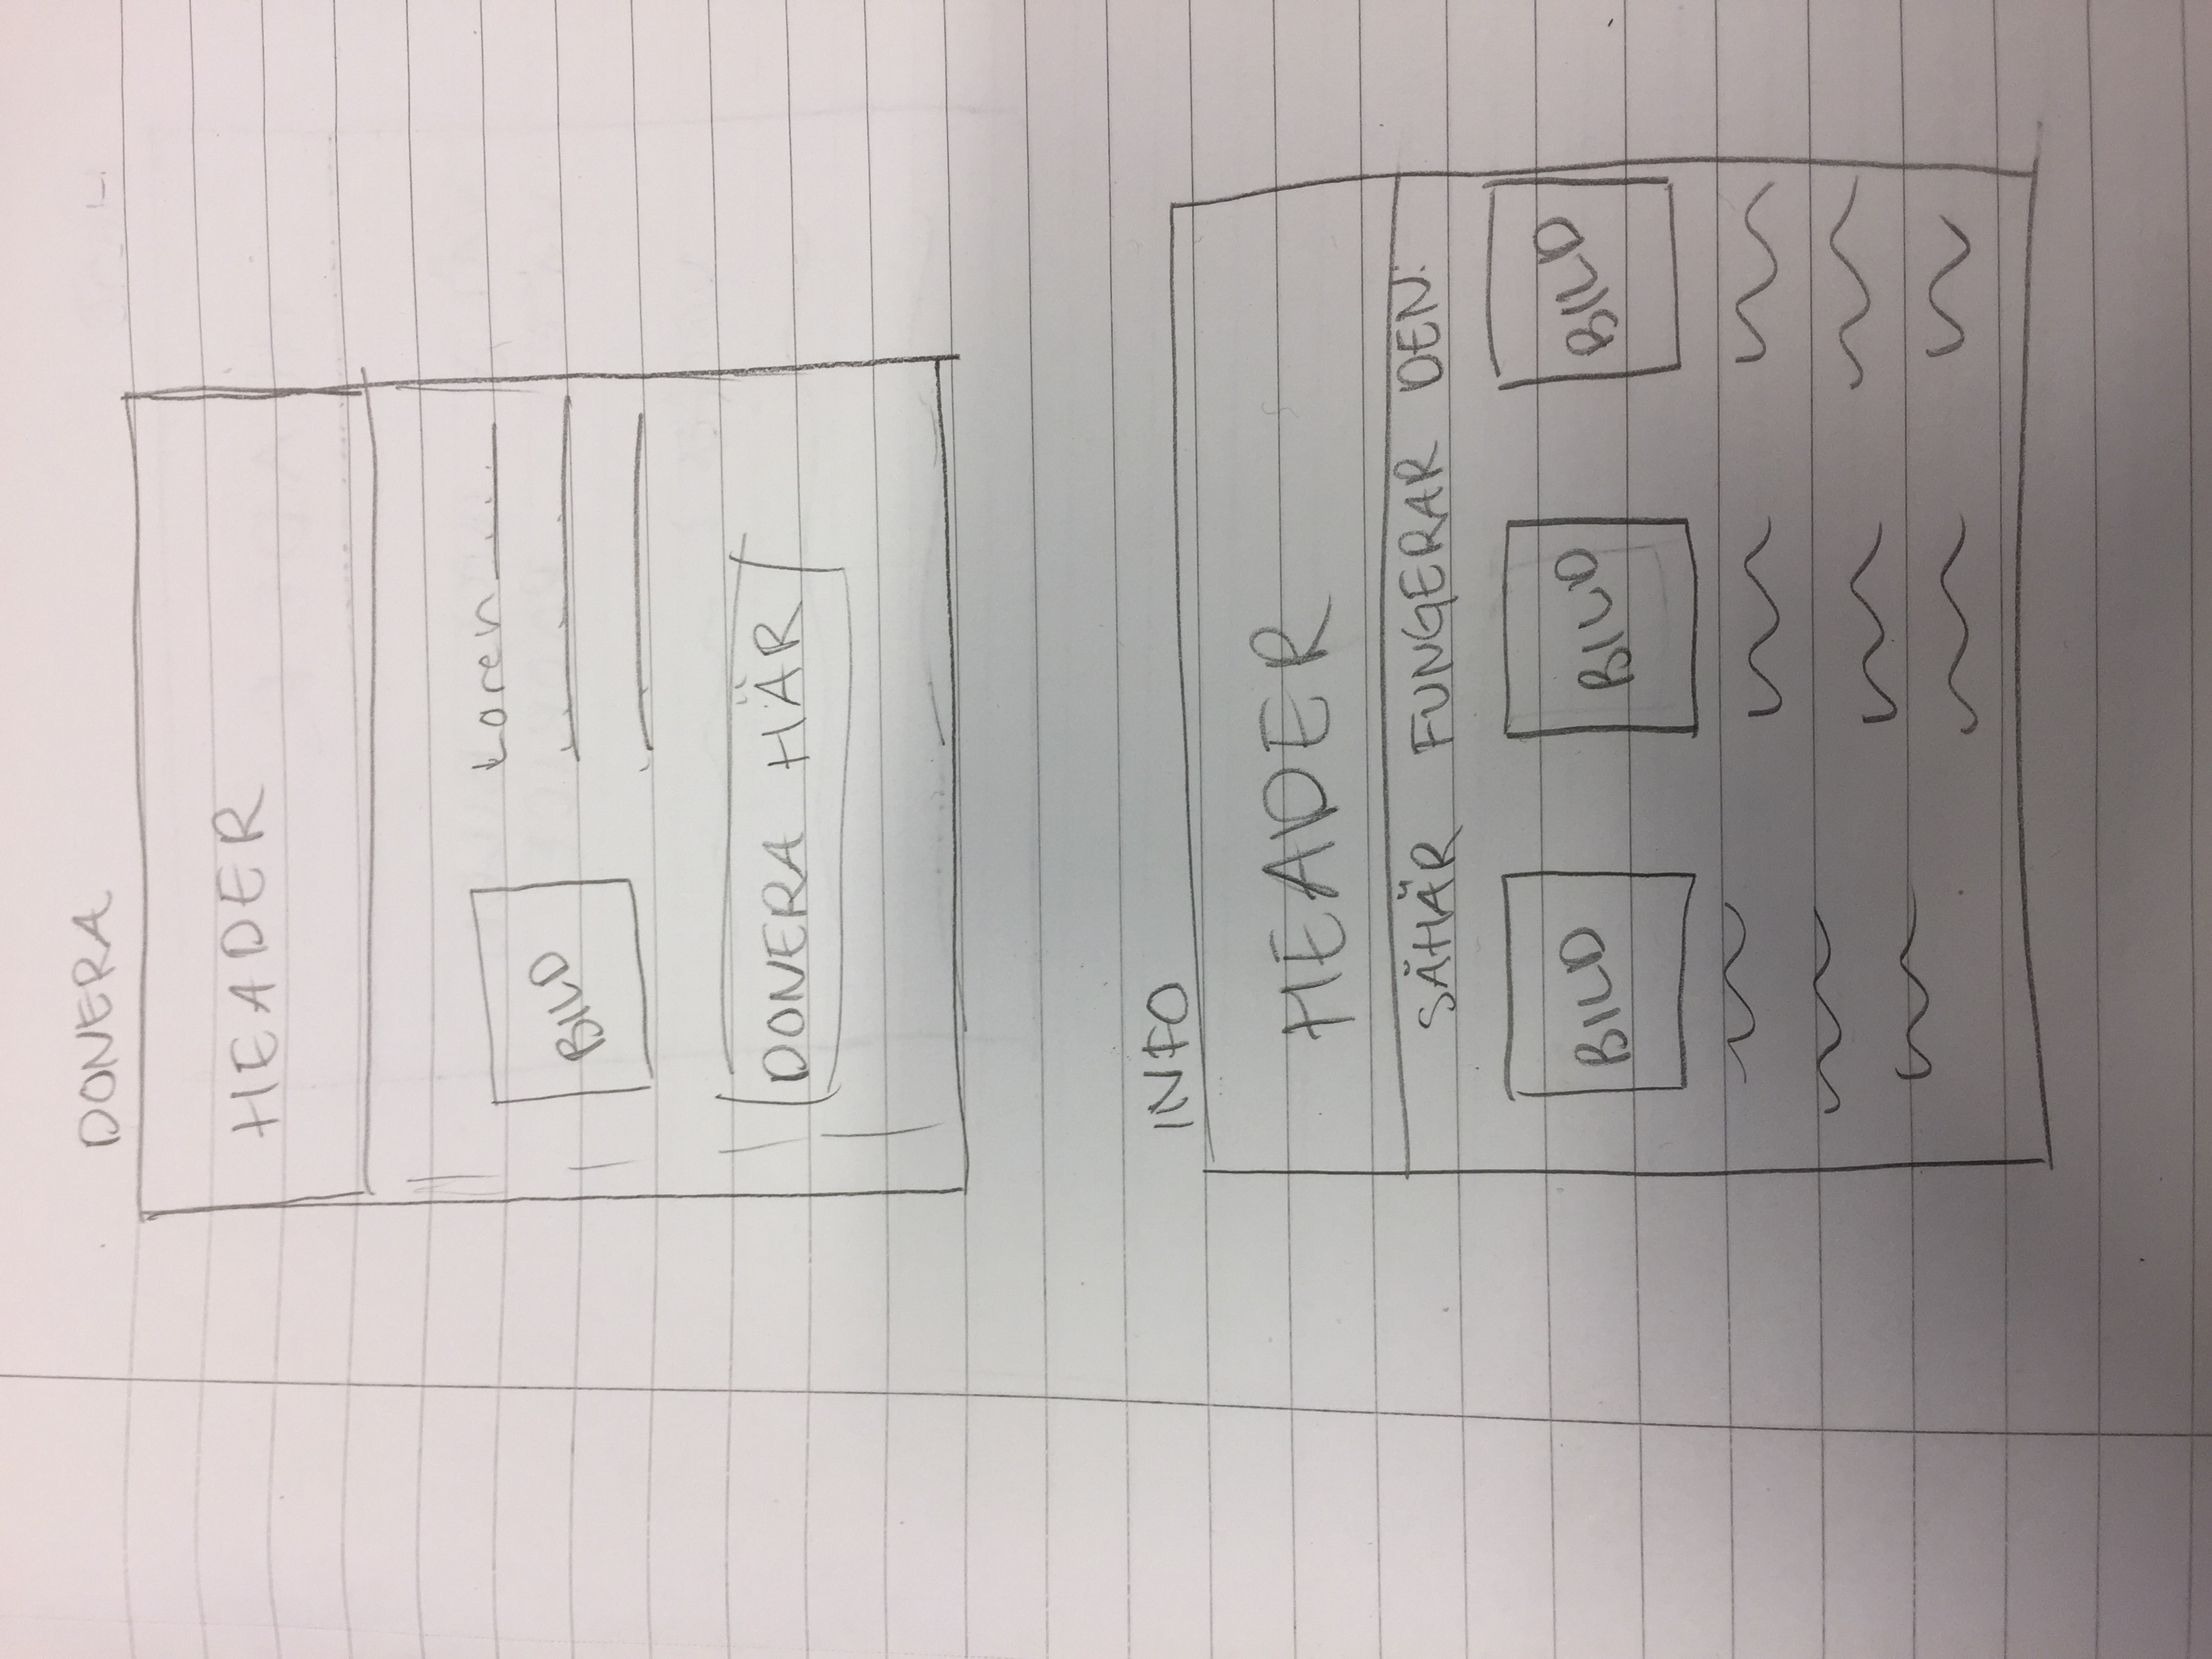 DONERA
HEADER
BILD
Loren
DONERA HÄR
INFO
HEADER
SÄHÄR FUNGERAR DEN:
BILD BILD BILD